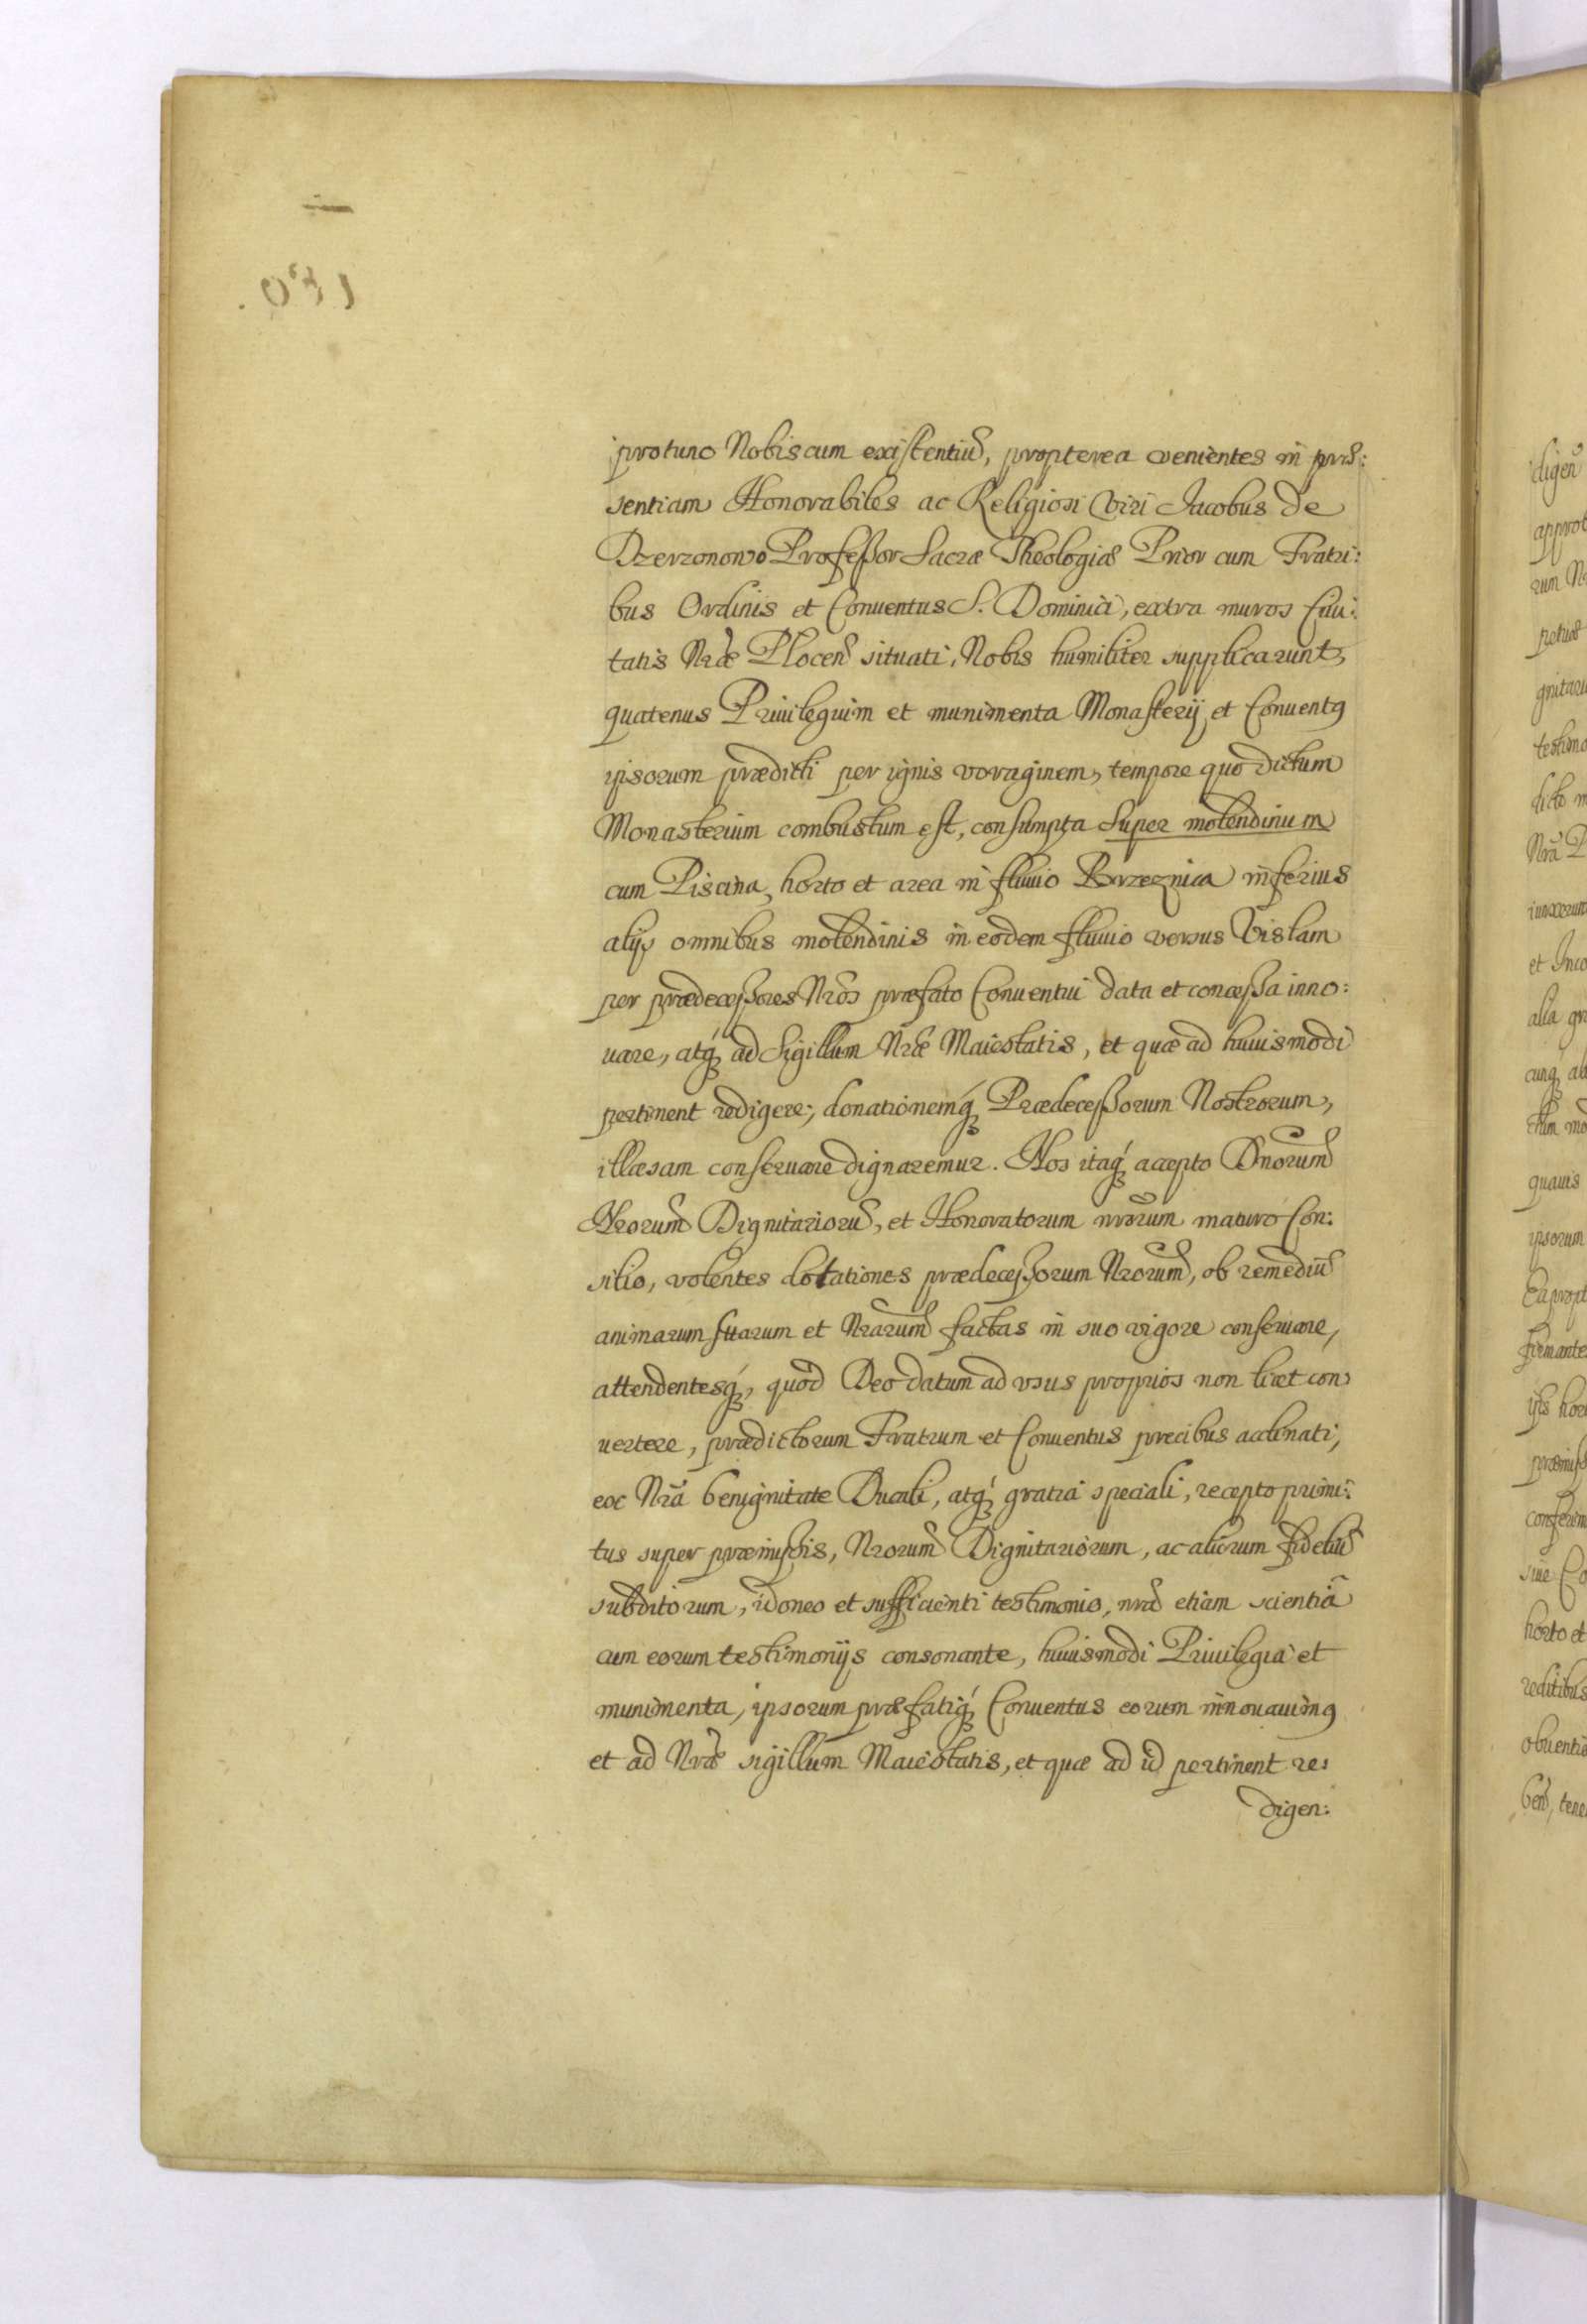 protunc Nobiscum existentiũ, propterea venientes in præ:
sentiam Honorabiles ac Religiosi Viri Jacobus de
Dzerzonowo Professor Sacræ Theologiæ Prior cum Fratri:
bus Ordinis et Conuentus S. Dominici, extra muros Ciui:
tatis Nræ Plocen̄ situati, Nobis humiliter supplicarunt,
quatenus Priuilegium et munimenta Monasterij et Conventꝯ
ipsorum prædicti per ignis voraginem, tempore quo dictum
Monasterium combustum est, consumpta Super molendinum
cum Piscina, horto et area in fluuio Brzeznica inferius
alijs omnibus molendinis in eodem fluuio versus Vislam
per prædecessores Nrõs præfato Conuentui data et concessa inno:
uare, atq́ꝫ ad Sigillum Nræ Maiestatis, et quæ ad huiusmodi
pertinent redigere, donationemq́ꝫ Prædecessorum Nostrorum,
illæsam conseruare dignaremur. Nos itaq́ꝫ accepto Dnorum̃
Nrorum̃ Dignitariorũ, et Honoratorum nrõrum maturo Con:
silio, volentes dotationes prædecessorum Nrorum̃, ob remediũ
animarum suarum et Nrarum̃ factas in suo vigore conseruare,
attendentesq́ꝫ, quod Deo datum ad vsus proprios non licet con
uertere, prædictorum Fratrum et Conuentus precibus acclinati,
ex Nrã benignitate Ducali, atq́ꝫ gratia speciali, recepto primi:
tus super præmissis, Nrorum̃ Dignitariorum, ac aliorum fideliũ
subditorum, idoneo et sufficienti testimonio, nrã etiam scientiã
cum eorum testimonijs consonante, huiusmodi Priuilegia et
munimenta, ipsorum præfatiq́ꝫ Conuentus eorum innouauimꝯ
et ad Nræ sigillum Maiestatis, et quæ ad id pertinent re:
digen: